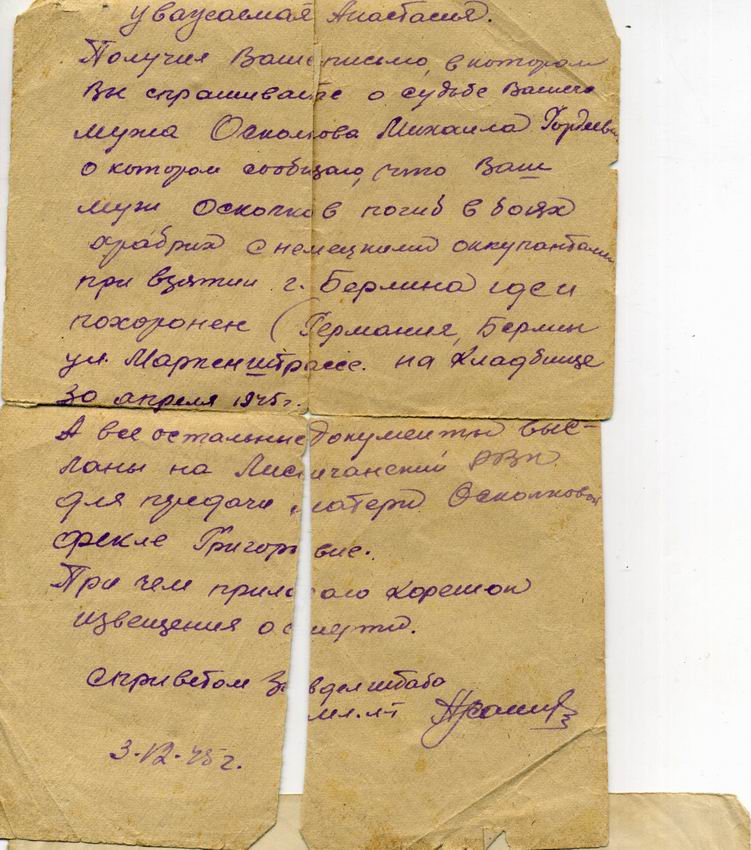 уважаемая Анастасия.
Получил Ваше письмо, в котором
Вы спрашиваете о судьбе Вашего
мужа Осколкова Михаила
о котором сообщаю, что Ваш
муж Осколков погиб в боях
храбрых с немецкими оккупантами
при взятии г. Берлина где и
похоронен (Германия, Берлин
ул. Маркенштрассе. на кладбище
30 апреля 1945г.
А все остальные документы выс-
ланы на Лисичанский РВК
для передачи матери Осколковой
Фекле Григорьевне.
При чем прилагаю корешок
извещения о смерти.
с приветом Завделштаба
мл. лт
3.12.45г.